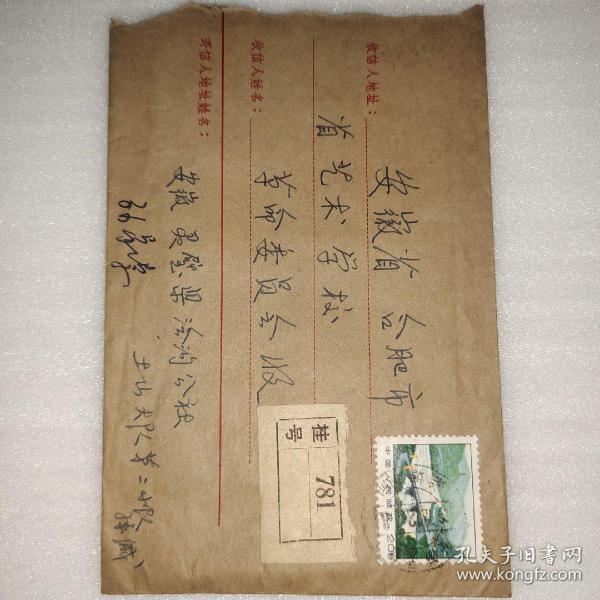 收信人地址：安徽省合肥市
省艺术学校
收信人姓名：革命委员会收
寄信人地址姓名：安徽灵璧县浍沟公社
土山大队第二小队
挂号
781
中国人民邮政 20分
孔夫子旧书网
www.kongfz.com